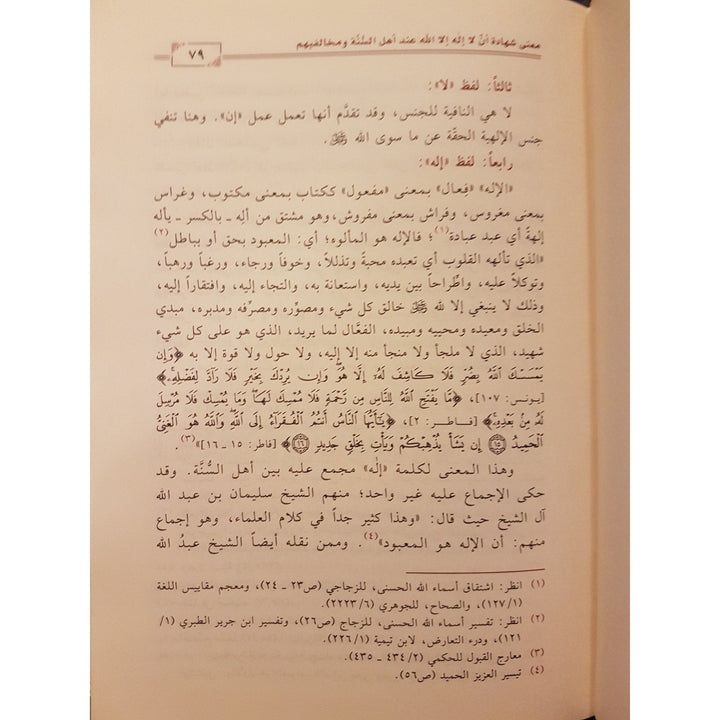 معنى شهادة أنْ لا إله إلا الله عند أهل السُّنَّة ومخالفيهم
٧٩
ثالثاً: لفظ «لا»:
لا هي النافية للجنس، وقد تقدَّم أنها تعمل عمل «إن». وهنا تنفي
جنس الإلهية الحقّة عن ما سوى الله ﷻ.
رابعاً: لفظ «إله»:
«الإله» «فِعال» بمعنى «مفعول» ككتاب بمعنى مكتوب، وغراس
بمعنى مغروس، وفراش بمعنى مفروش، وهو مشتق من ألِه ـ بالكسر ـ يأله
إلهةً أي عبد عبادة(١)؛ فالإله هو المألوه؛ أي: المعبود بحق أو بباطل(٢)
«الذي تألهه القلوب أي تعبده محبةً وتذللاً، وخوفاً ورجاء، ورغباً ورهباً،
وتوكلاً عليه، واطِّراحاً بين يديه، واستعانة به، والتجاء إليه، وافتقاراً إليه،
وذلك لا ينبغي إلا لله ﷻ خالق كل شيء ومصوِّره ومصرِّفه ومدبره، مبدي
الخلق ومعيده ومحييه ومبيده، الفعَّال لما يريد، الذي هو على كل شيء
شهيد، الذي لا ملجأ ولا منجأ منه إلا إليه، ولا حول ولا قوة إلا به ﴿وَإِن
يَمْسَسْكَ ٱللَّهُ بِضُرٍّ فَلَا كَاشِفَ لَهُۥٓ إِلَّا هُوَۖ وَإِن يُرِدْكَ بِخَيْرٍ فَلَا رَآدَّ لِفَضْلِهِۦۚ﴾
[يونس: ١٠٧]، ﴿مَّا يَفْتَحِ ٱللَّهُ لِلنَّاسِ مِن رَّحْمَةٍ فَلَا مُمْسِكَ لَهَاۖ وَمَا يُمْسِكْ فَلَا مُرْسِلَ
لَهُۥ مِنۢ بَعْدِهِۦۚ﴾ [فاطر: ٢]، ﴿يَٰٓأَيُّهَا ٱلنَّاسُ أَنتُمُ ٱلْفُقَرَآءُ إِلَى ٱللَّهِۖ وَٱللَّهُ هُوَ ٱلْغَنِىُّ
ٱلْحَمِيدُ ۝١٥ إِن يَشَأْ يُذْهِبْكُمْ وَيَأْتِ بِخَلْقٍ جَدِيدٍ ۝١٦﴾ [فاطر: ١٥ ـ ١٦]»(٣).
وهذا المعنى لكلمة «إله» مجمع عليه بين أهل السُّنَّة. وقد
حكى الإجماع عليه غير واحد؛ منهم الشيخ سليمان بن عبد الله
آل الشيخ حيث قال: «وهذا كثير جداً في كلام العلماء، وهو إجماع
منهم: أن الإله هو المعبود»(٤). وممن نقله أيضاً الشيخ عبدُ الله
(١) انظر: اشتقاق أسماء الله الحسنى، للزجاجي (ص٢٣ ـ ٢٤)، ومعجم مقاييس اللغة
(١/١٢٧)، والصحاح، للجوهري (٦/٢٢٢٣).
(٢) انظر: تفسير أسماء الله الحسنى، للزجاج (ص٢٦)، وتفسير ابن جرير الطبري (١/
١٢١)، ودرء التعارض، لابن تيمية (١/٢٢٦).
(٣) معارج القبول للحكمي (٢/٤٣٤ ـ ٤٣٥).
(٤) تيسير العزيز الحميد (ص٥٦).